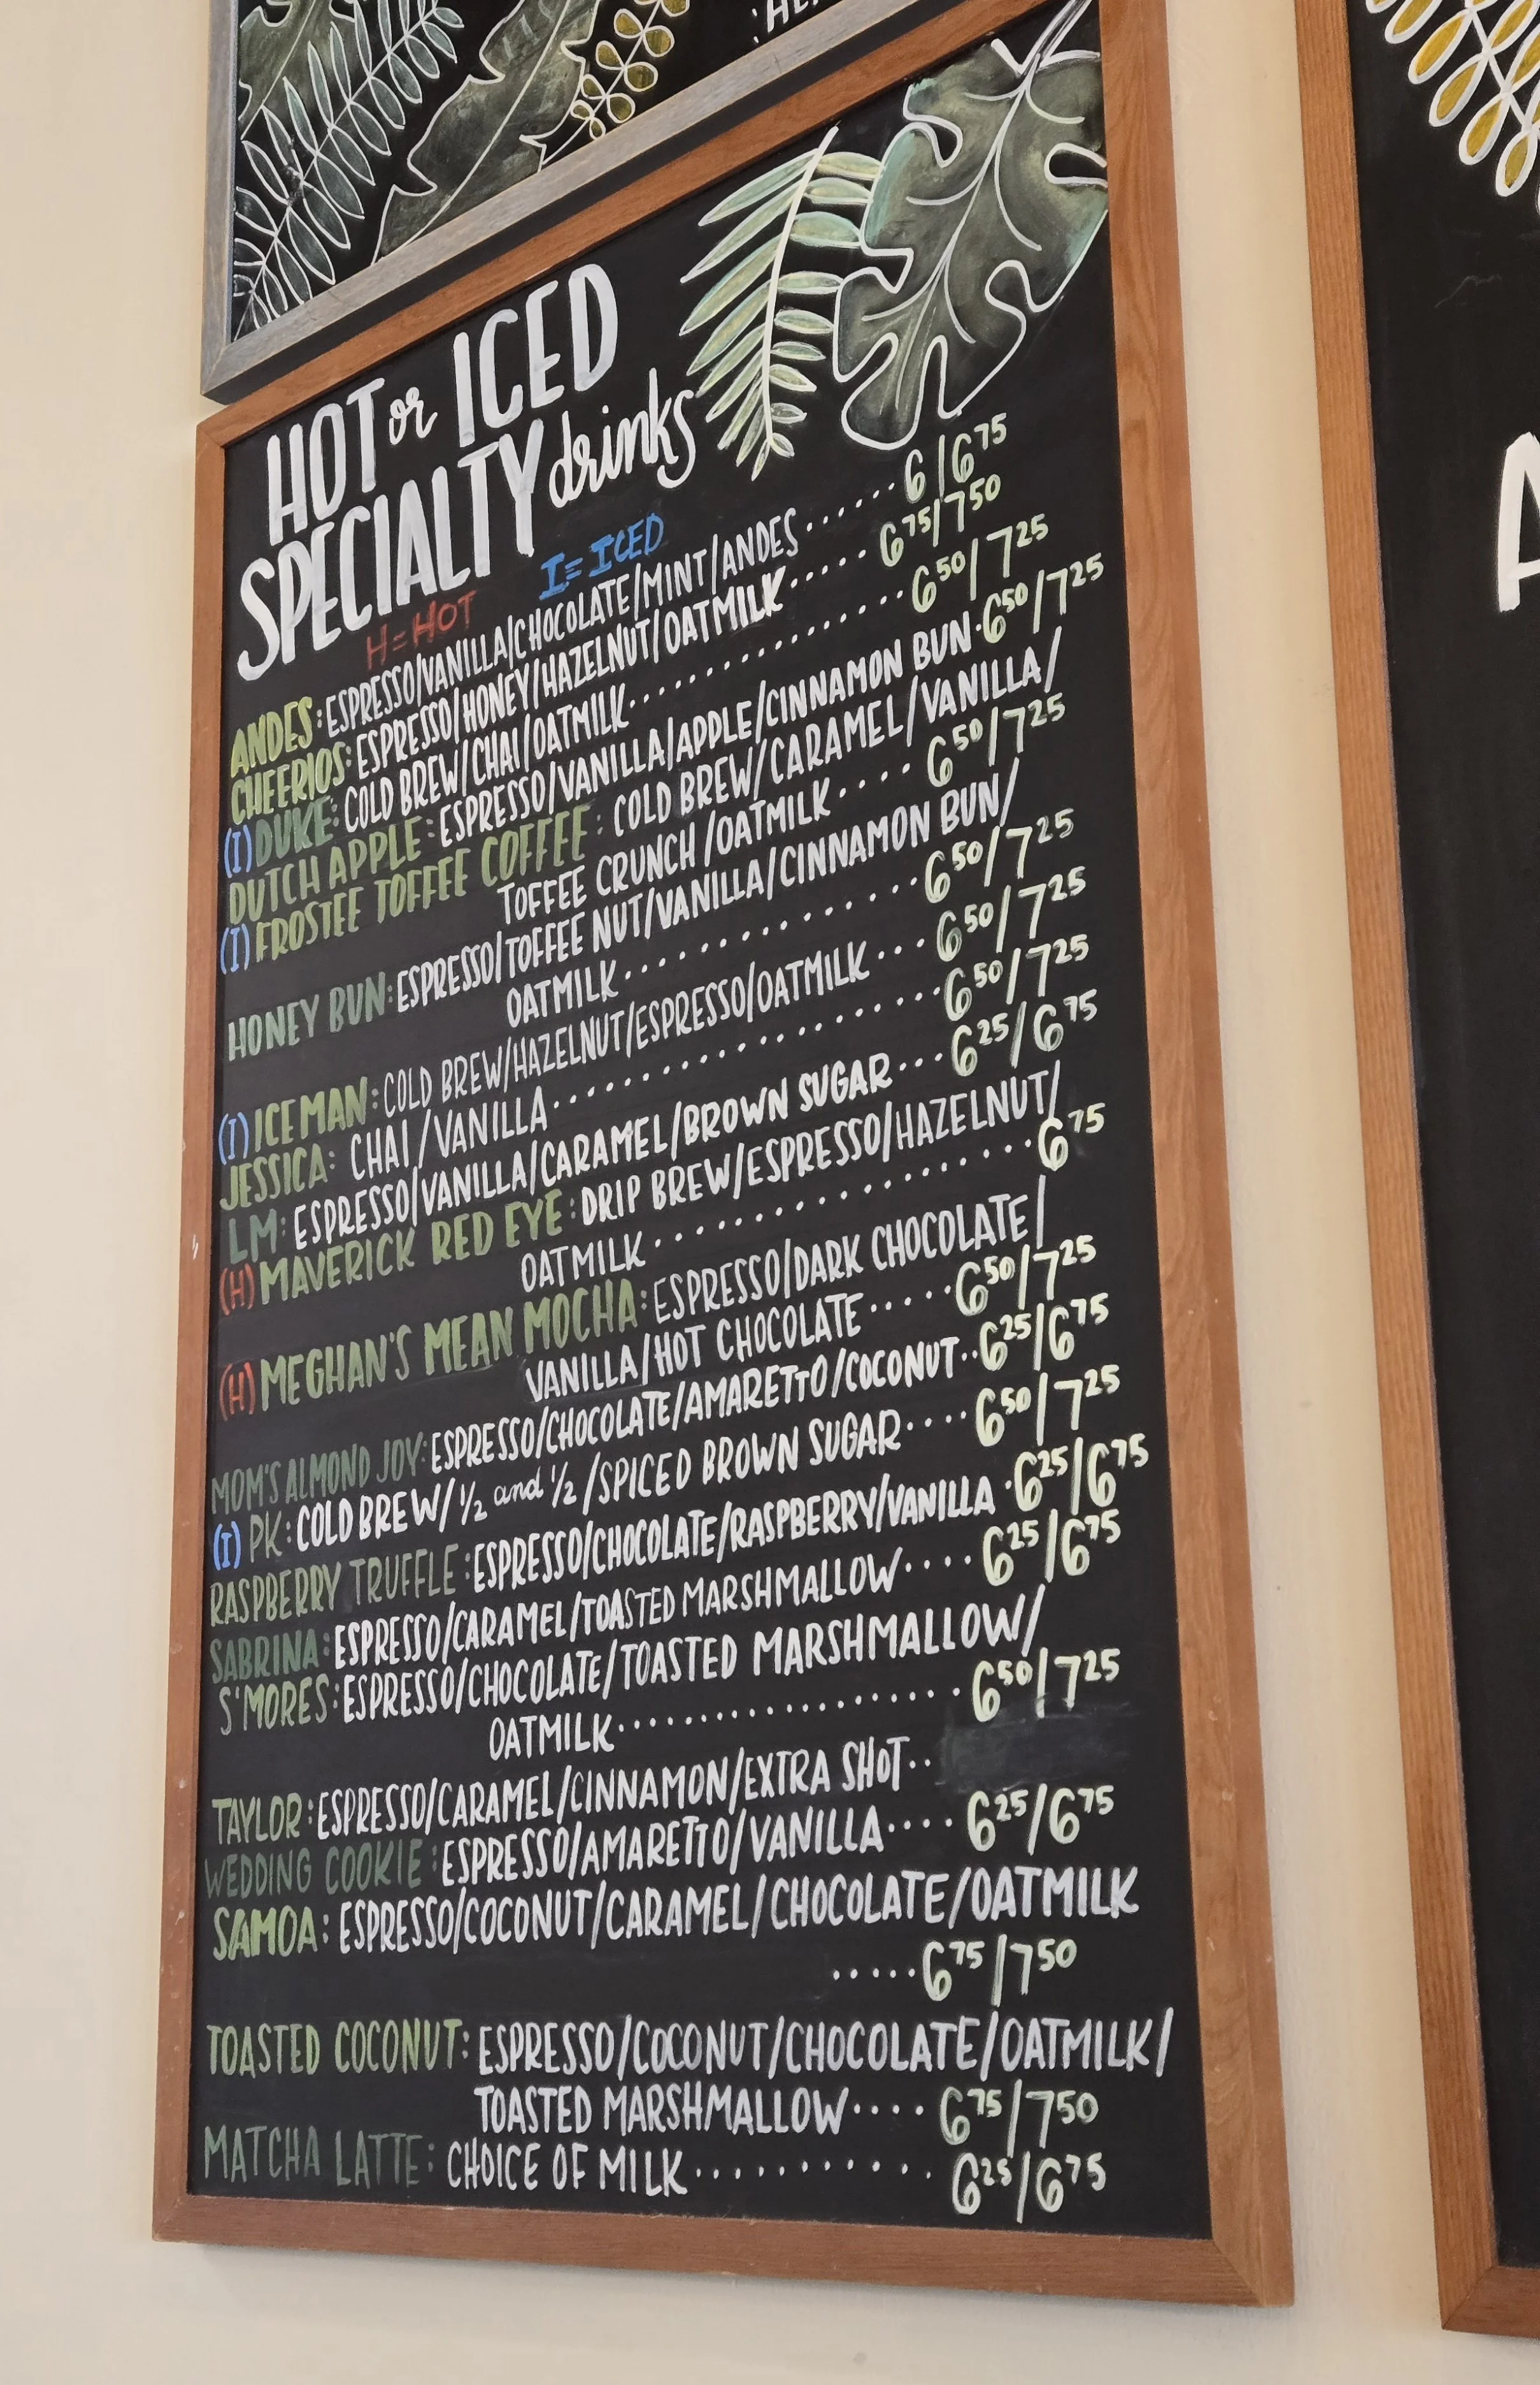 HOT or ICED
SPECIALTY drinks
H=HOT I=ICED
ANDES: ESPRESSO/VANILLA/CHOCOLATE/MINT/ANDES ...... 6/6⁷⁵
CHEERIOS: ESPRESSO/HONEY/HAZELNUT/OATMILK ..... 6⁷⁵/7⁵⁰
(I) DUKE: COLD BREW/CHAI/OATMILK .............. 6⁵⁰/7²⁵
DUTCH APPLE: ESPRESSO/VANILLA/APPLE/CINNAMON BUN . 6⁵⁰/7²⁵
(I) FROSTEE TOFFEE COFFEE: COLD BREW/CARAMEL/VANILLA/
TOFFEE CRUNCH/OATMILK .... 6⁵⁰/7²⁵
HONEY BUN: ESPRESSO/TOFFEE NUT/VANILLA/CINNAMON BUN/
OATMILK .............. 6⁵⁰/7²⁵
(I) ICEMAN: COLD BREW/HAZELNUT/ESPRESSO/OATMILK ... 6⁵⁰/7²⁵
JESSICA: CHAI/VANILLA .................. 6⁵⁰/7²⁵
LM: ESPRESSO/VANILLA/CARAMEL/BROWN SUGAR ... 6²⁵/6⁷⁵
(H) MAVERICK RED EYE: DRIP BREW/ESPRESSO/HAZELNUT/
OATMILK ................. 6⁷⁵
(H) MEGHAN'S MEAN MOCHA: ESPRESSO/DARK CHOCOLATE/
VANILLA/HOT CHOCOLATE ..... 6⁵⁰/7²⁵
MOM'S ALMOND JOY: ESPRESSO/CHOCOLATE/AMARETTO/COCONUT .. 6²⁵/6⁷⁵
(I) PK: COLD BREW/½ and ½/SPICED BROWN SUGAR .... 6⁵⁰/7²⁵
RASPBERRY TRUFFLE: ESPRESSO/CHOCOLATE/RASPBERRY/VANILLA . 6²⁵/6⁷⁵
SABRINA: ESPRESSO/CARAMEL/TOASTED MARSHMALLOW .... 6²⁵/6⁷⁵
S'MORES: ESPRESSO/CHOCOLATE/TOASTED MARSHMALLOW/
OATMILK ................... 6⁵⁰/7²⁵
TAYLOR: ESPRESSO/CARAMEL/CINNAMON/EXTRA SHOT ..
WEDDING COOKIE: ESPRESSO/AMARETTO/VANILLA .... 6²⁵/6⁷⁵
SAMOA: ESPRESSO/COCONUT/CARAMEL/CHOCOLATE/OATMILK
..... 6⁷⁵/7⁵⁰
TOASTED COCONUT: ESPRESSO/COCONUT/CHOCOLATE/OATMILK/
TOASTED MARSHMALLOW .... 6⁷⁵/7⁵⁰
MATCHA LATTE: CHOICE OF MILK ............ 6²⁵/6⁷⁵